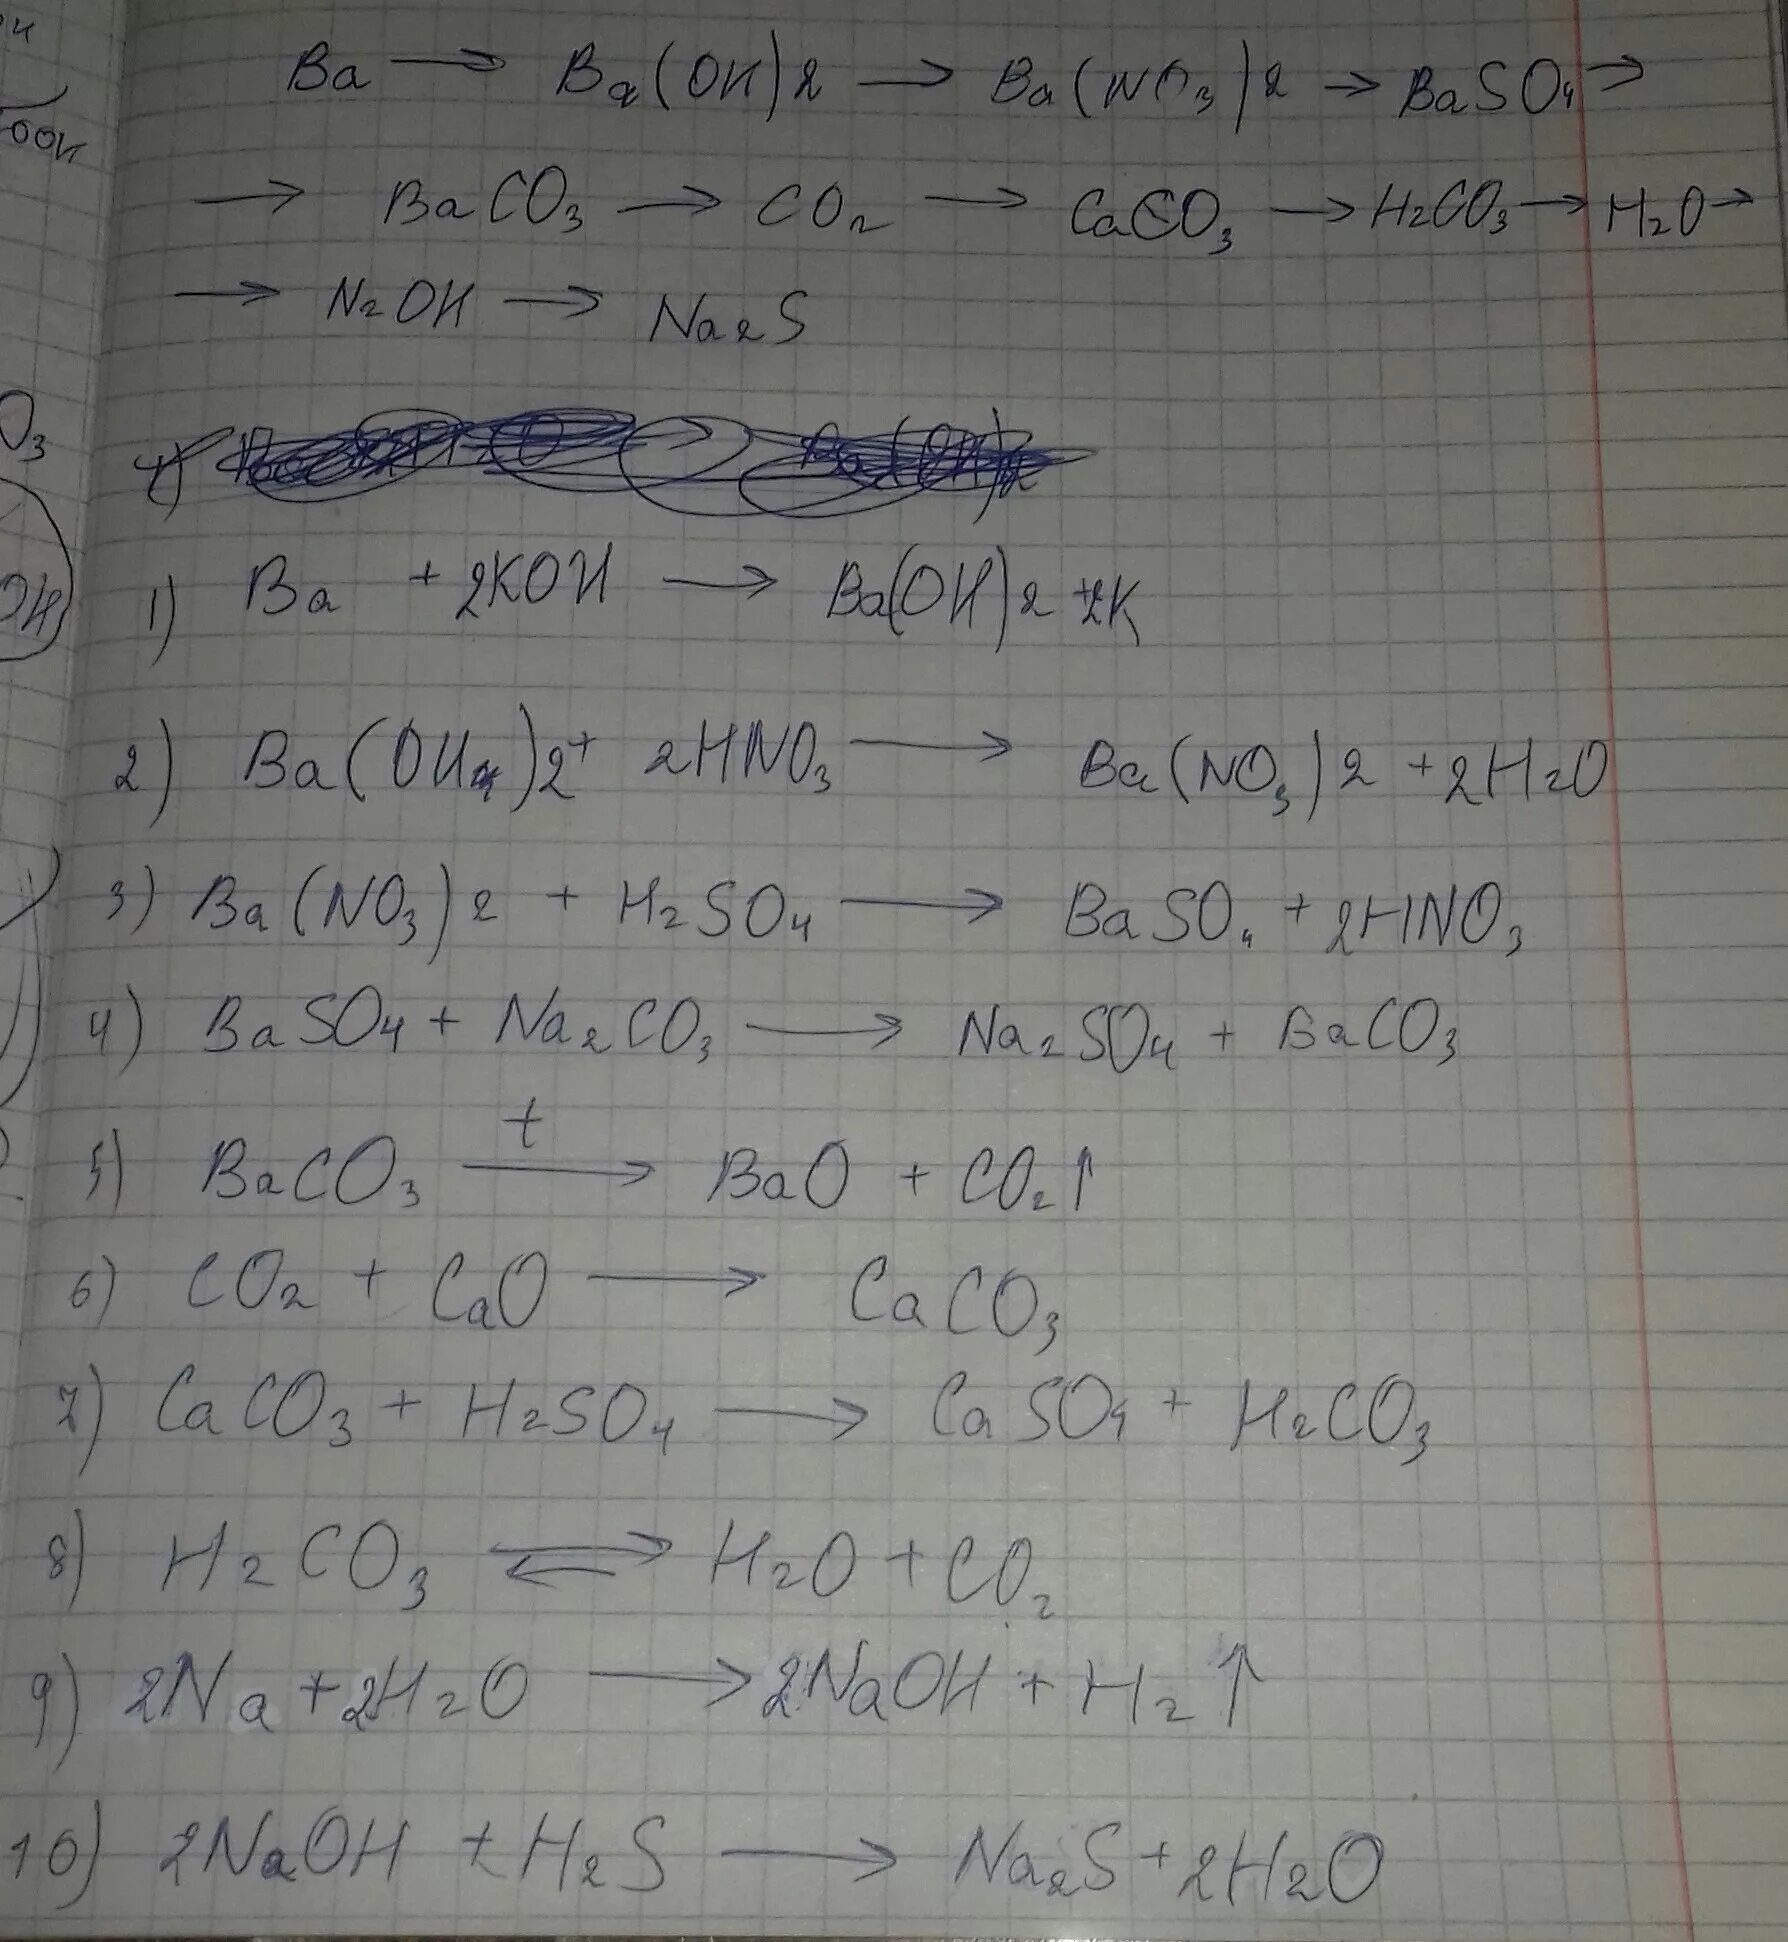 Ba → Ba(OH)2 → Ba(NO3)2 → BaSO4 →
→ BaCO3 → CO2 → CaCO3 → H2CO3 → H2O →
→ N2OH → Na2S
1) Ba + 2KOH → Ba(OH)2 + 2K
2) Ba(OH)2 + 2HNO3 → Ba(NO3)2 + 2H2O
3) Ba(NO3)2 + H2SO4 → BaSO4 + 2HNO3
4) BaSO4 + Na2CO3 → Na2SO4 + BaCO3
t
5) BaCO3 → BaO + CO2↑
6) CO2 + CaO → CaCO3
7) CaCO3 + H2SO4 → CaSO4 + H2CO3
8) H2CO3 ⇌ H2O + CO2
9) 2Na + 2H2O → 2NaOH + H2↑
10) 2NaOH + H2S → Na2S + 2H2O